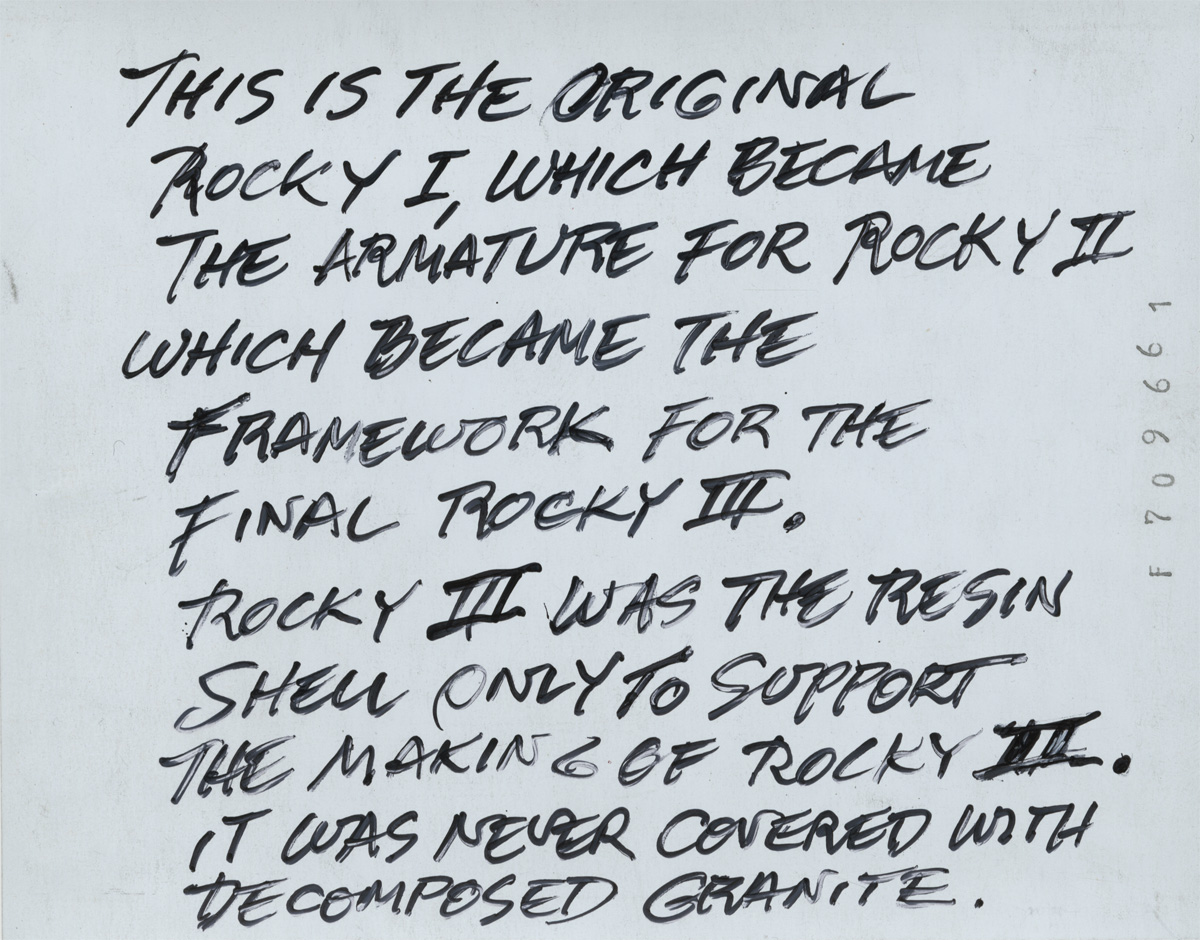 THIS IS THE ORIGINAL
ROCKY I, WHICH BECAME
THE ARMATURE FOR ROCKY II
WHICH BECAME THE
FRAMEWORK FOR THE
FINAL ROCKY III.
ROCKY II WAS THE RESIN
SHELL ONLY TO SUPPORT
THE MAKING OF ROCKY III.
IT WAS NEVER COVERED WITH
DECOMPOSED GRANITE.
F709661